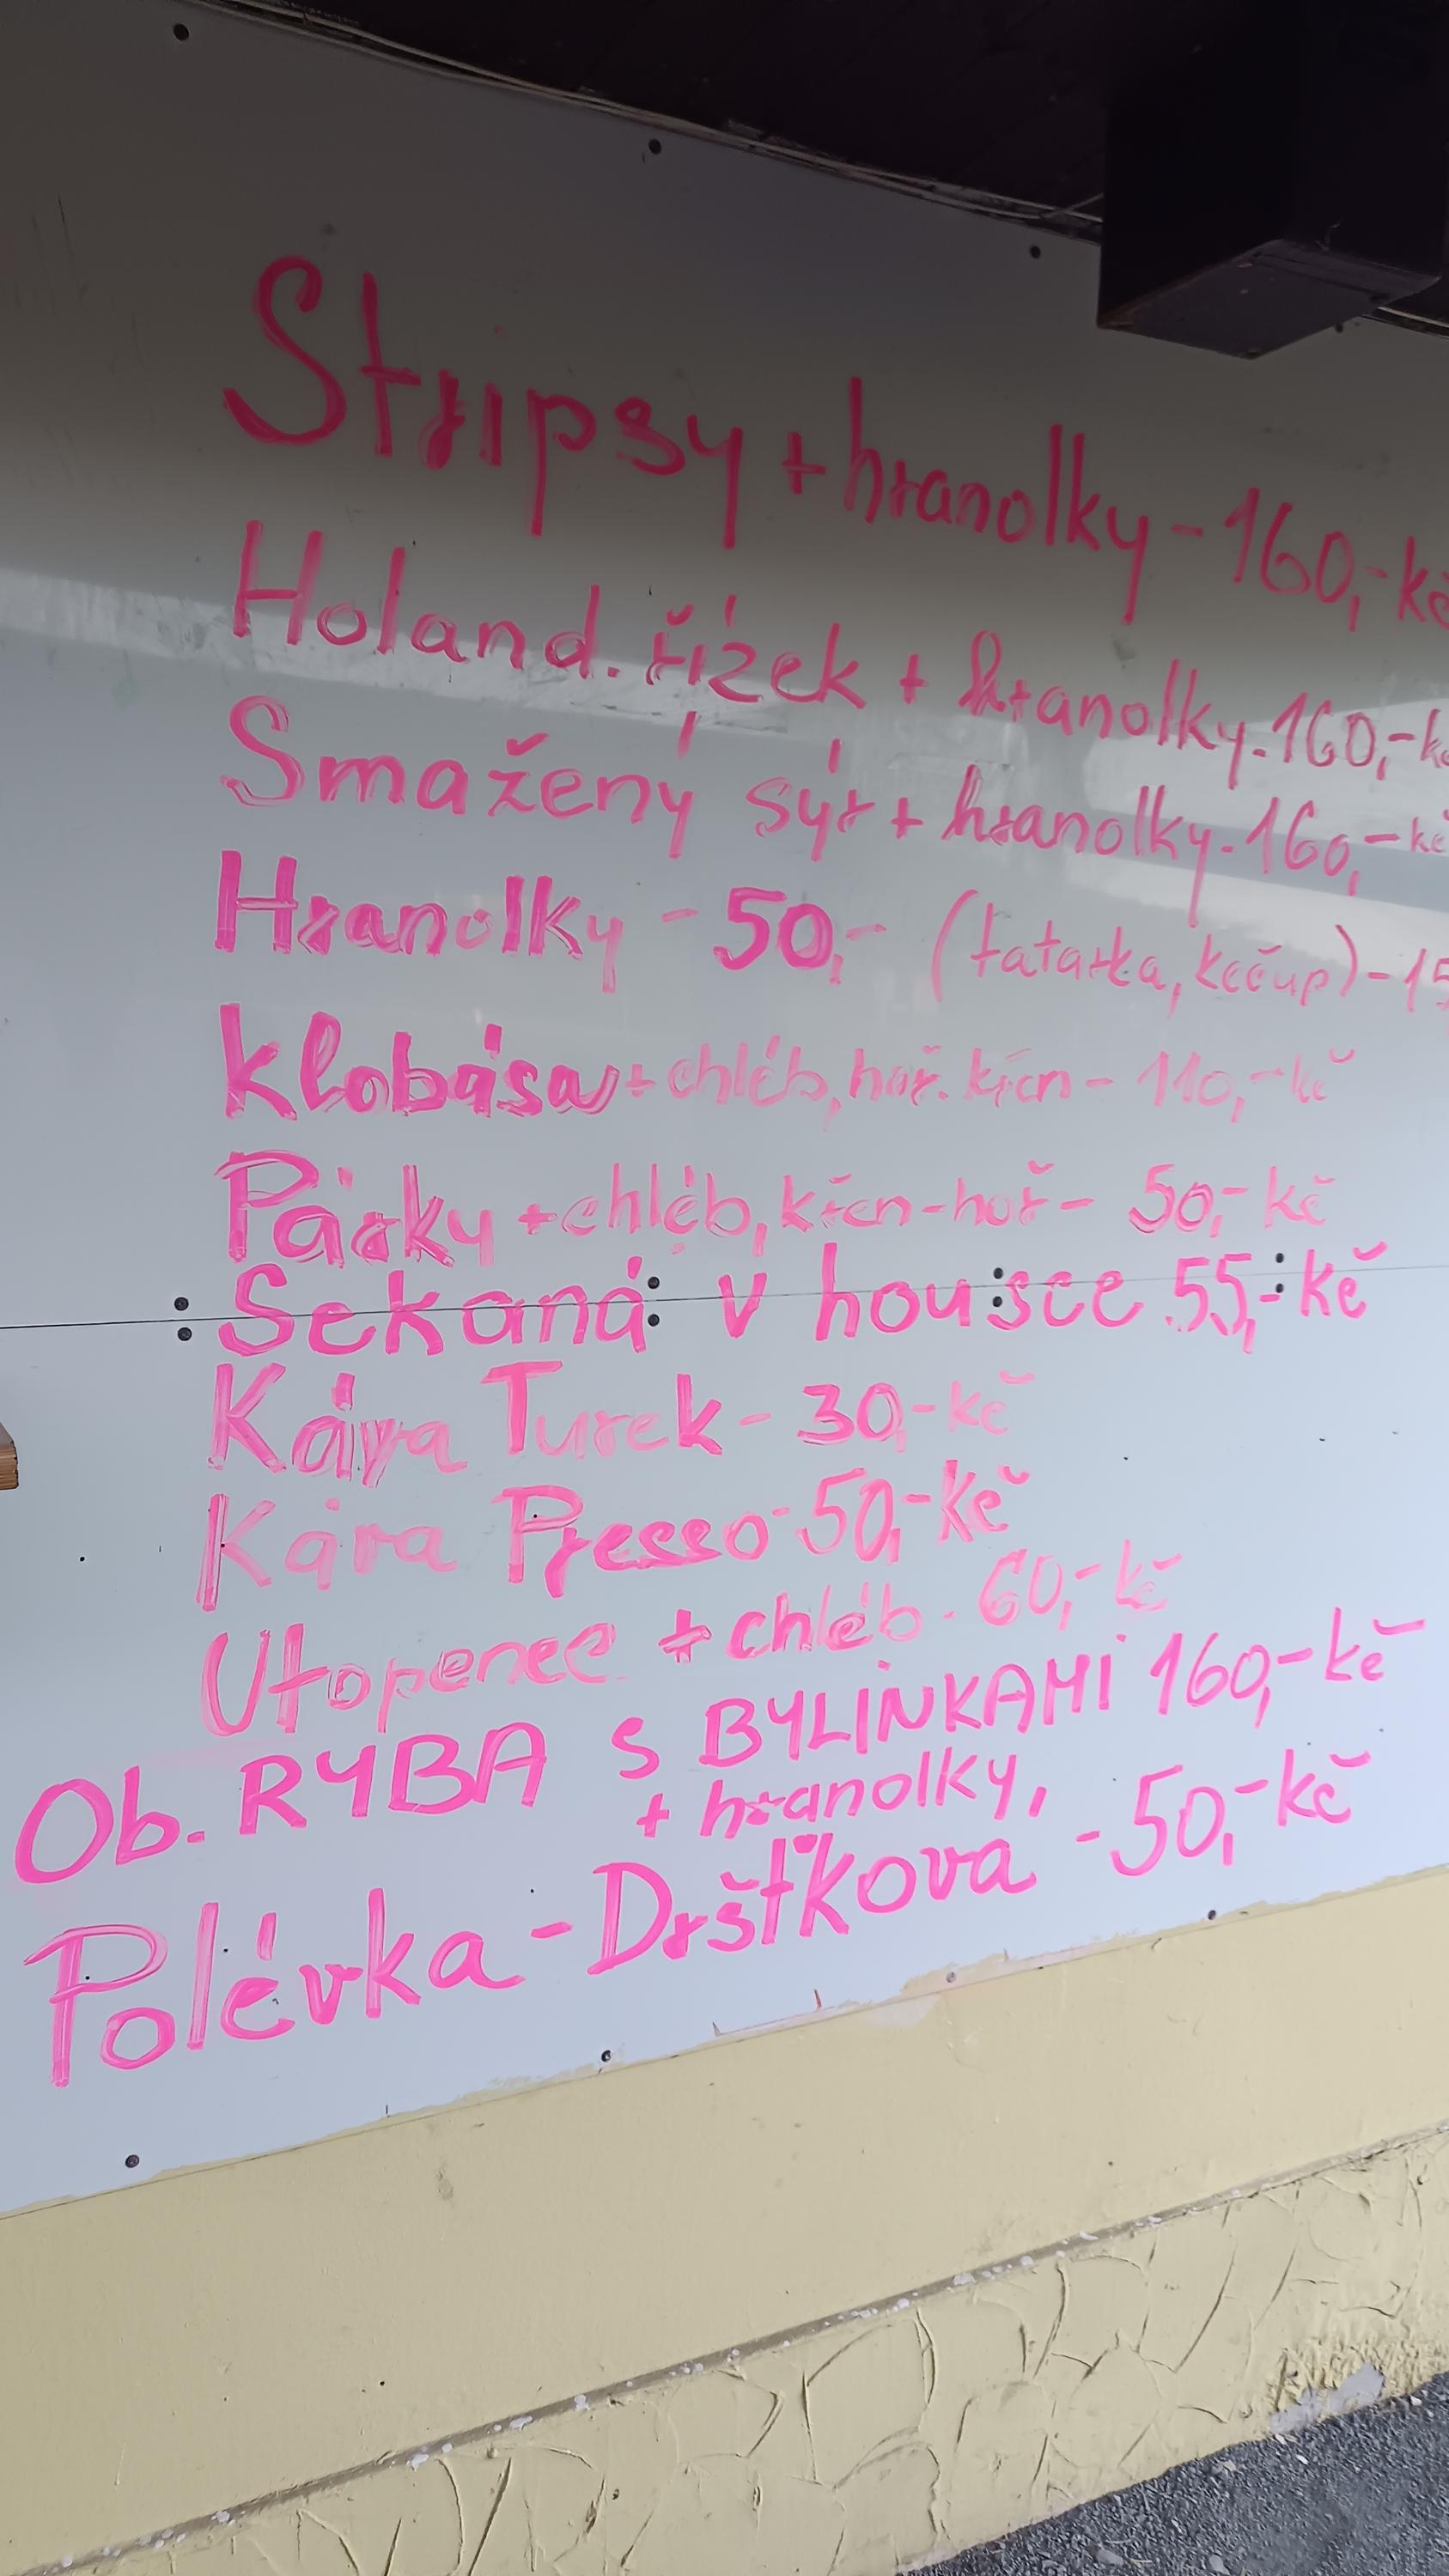 Stripsy + hranolky - 160,- kč
Holand. řízek + hranolky. 160,- kč
Smažený sýr + hranolky. 160,- kč
Hranolky - 50,- (tatarka, kečup) - 15
Klobása + chléb, hoř. křen - 110,- kč
Párky + chléb, křen - hoř - 50,- kč
Sekaná v housce 55,- kč
Káva Turek - 30,- kč
Káva Presso - 50,- kč
Utopenec + chléb - 60,- kč
Ob. RYBA S BYLINKAMI 160,- kč
+ hranolky,
Polévka - Dršťková - 50,- kč